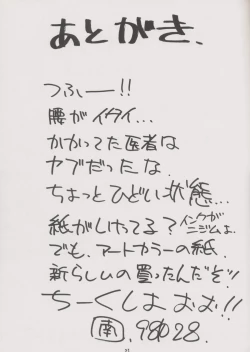 あとがき.
つふー!!
腰がイタイ...
かかってた医者は
ヤブだったな.
ちょっとひどい状態...
紙がしけってる?インクがニジムよ.
でも.アートカラーの紙.
新らしいの買ったんだぞ!!
ちーくしょおお!!
南.